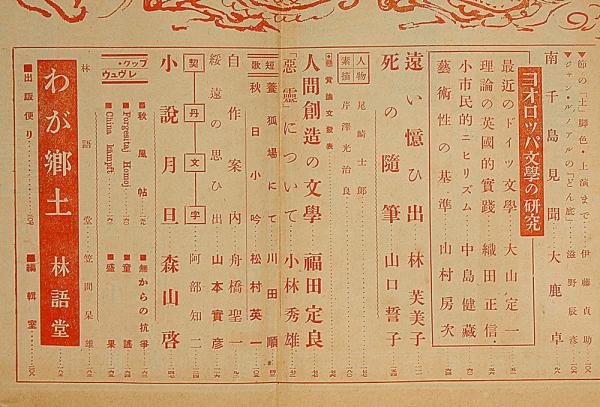 ▼節の「土」脚色・上演まで…伊藤貞助
▼ジャン・ルノアルの「どん底」 滋野辰彦
南千島見聞 大鹿卓
ヨオロッパ文學の研究
最近のドイツ文學 大山定一
理論の英國的實踐 織田正信
小市民的ニヒリズム 中島健藏
藝術性の基準 山村房次
遠い憶ひ出 林芙美子
死の隨筆 山口誓子
人物素描
尾崎士郎
芹澤光治良
懸賞論文發表
人間創造の文學 福田定良
「惡靈」について 小林秀雄
短歌
蓑狐場にて 川田順
秋日小吟 松村英一
自作案内 舟橋聖一
綏遠の思ひ出 山本實彦
契丹文字 阿部知二
小說月旦 森山啓
ブック・レヴュウ
■秋風帖
■Forgesitaj Homoj
■China kampft
■無からの抗爭
■童謠
■盛果
林語堂 笠間杲雄
わが鄕土 林語堂
■出版便り
■編輯室